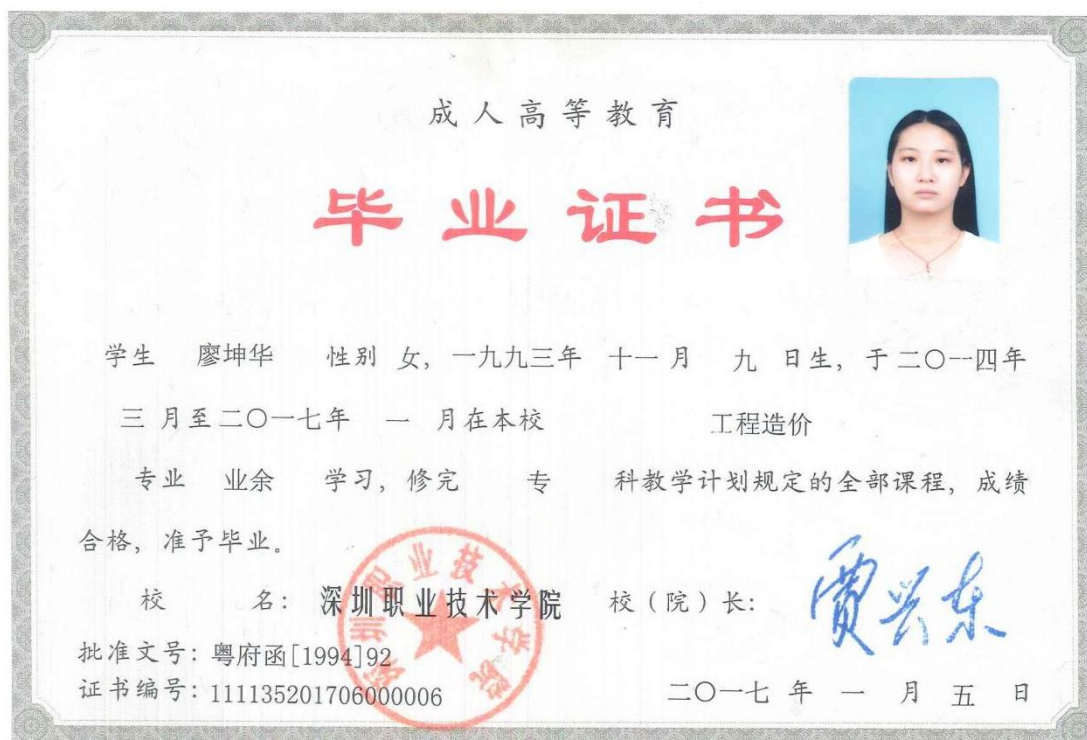 成人高等教育
毕业证书
学生 廖坤华 性别 女，一九九三年 十一 月 九 日生，于二〇一四年
三 月至二〇一七年 一 月在本校 工程造价
专业 业余 学习，修完 专 科教学计划规定的全部课程，成绩
合格，准予毕业。
校 名：深圳职业技术学院 校（院）长：贾兴东
深圳职业技术学院
批准文号：粤府函[1994]92
证书编号：111135201706000006
二〇一七 年 一 月 五 日